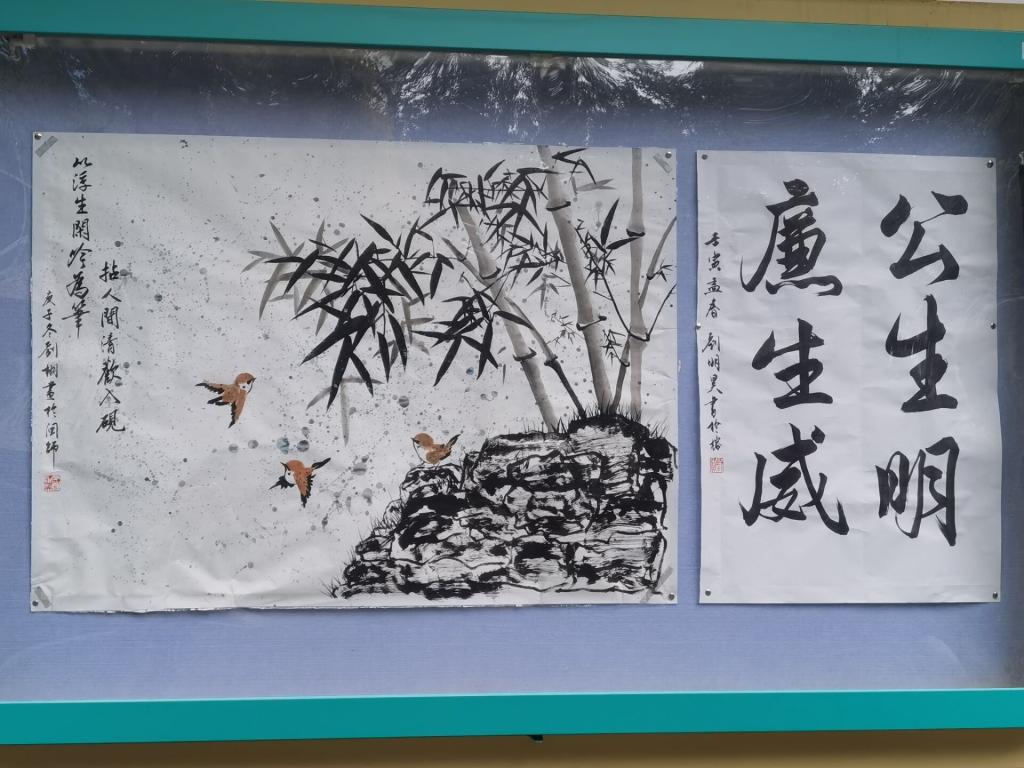 公生明
廉生威
壬寅孟春 劉明昊書於榕
以浮生閑吟為筆
拈人間清歡入硯
庚子冬劉桐畫於閩師